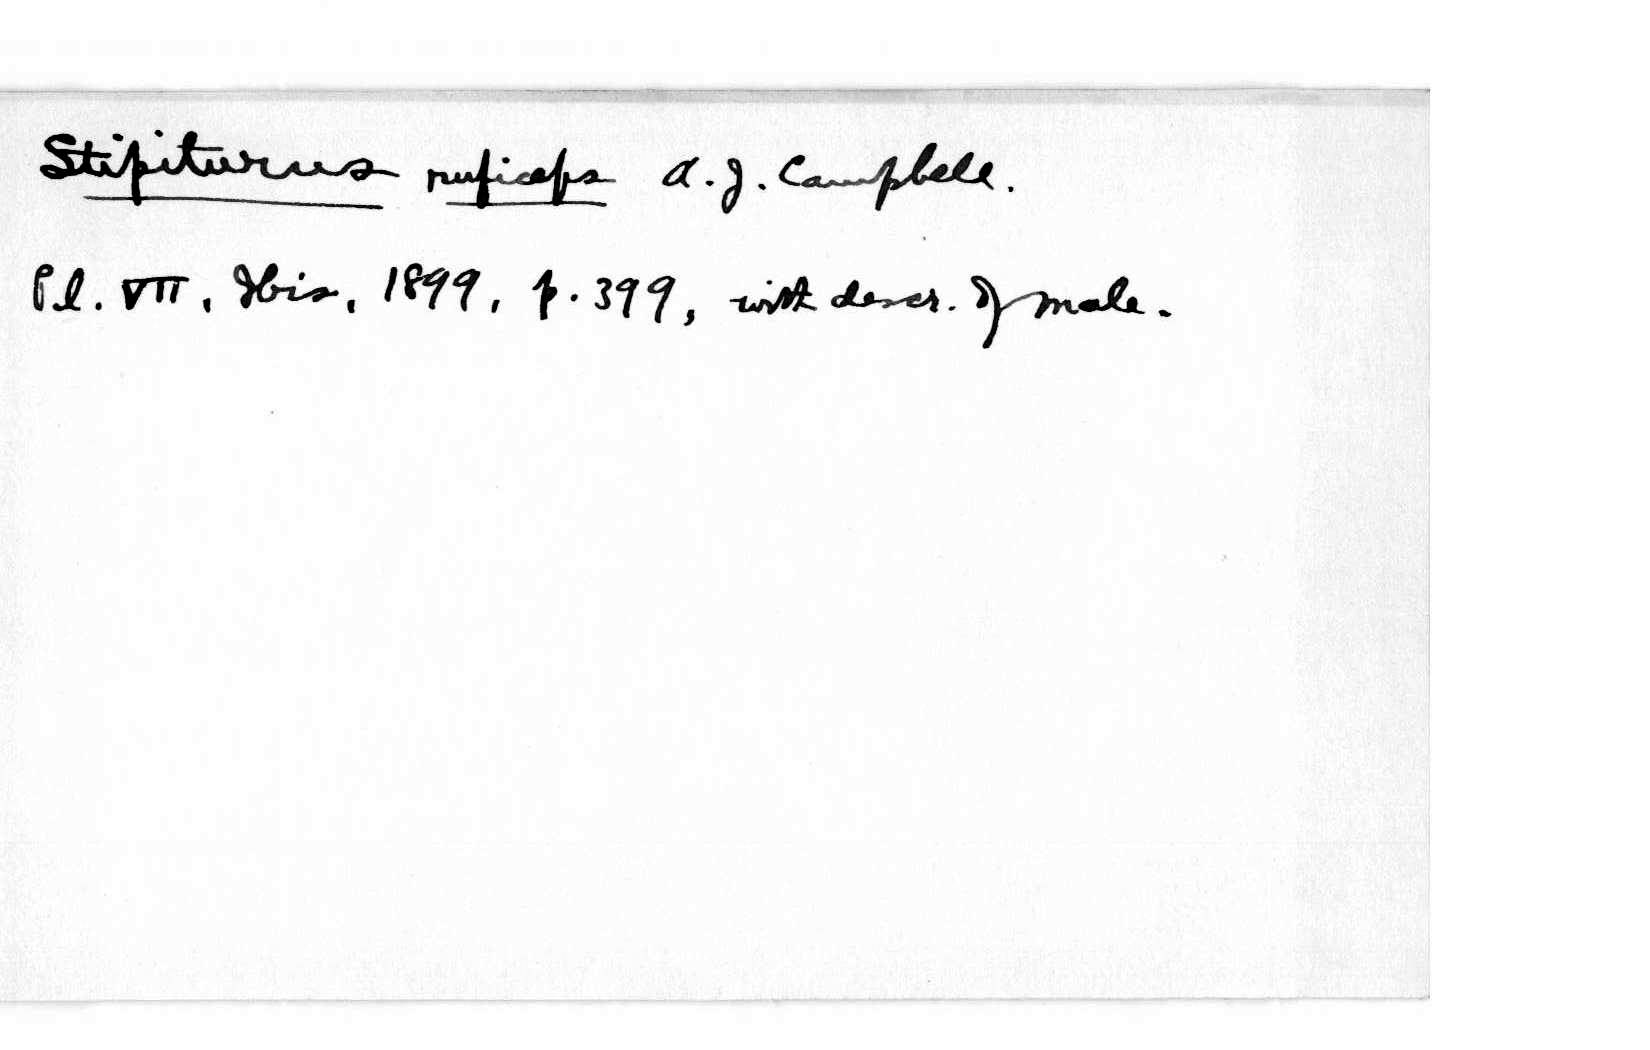 Stipiturus ruficeps A. J. Campbell.
Pl. VII, Ibis, 1899, p. 399, with descr. of male.